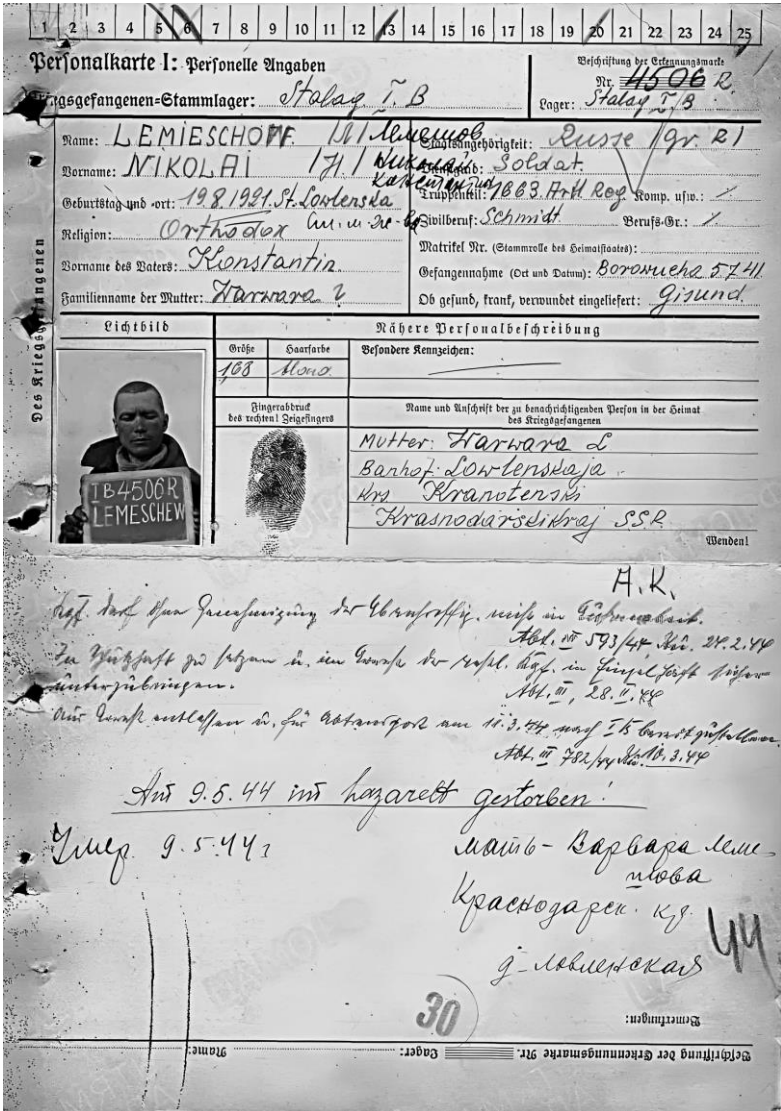 1 2 3 4 5 6 7 8 9 10 11 12 13 14 15 16 17 18 19 20 21 22 23 24 25
Personalkarte I: Personelle Angaben
Kriegsgefangenen=Stammlager: Stalag I. B
Beschriftung der Erkennungsmarke
Nr. 4506 R.
Lager: Stalag I/B
Des Kriegsgefangenen
Name: LEMIESCHOFF /Л/ Лемешов
Vorname: NIKOLAI /Н/ Николай
Константин
Geburtstag und =ort: 19.8.1921. St. Lowlenska
Religion: Orthodox
Vorname des Vaters: Konstantin
Familienname der Mutter: Warwara ?
Staatsangehörigkeit: Russe /gr. R/
Dienstgrad: Soldat.
Truppenteil: 1663. Artl Reg. Komp. usw.: /
Zivilberuf: Schmidt Berufs=Gr.: /
Matrikel Nr. (Stammrolle des Heimatstaates):
Gefangennahme (Ort und Datum): Borowucha 5741
Ob gesund, krank, verwundet eingeliefert: Gisund
Lichtbild
Nähere Personalbeschreibung
Größe Haarfarbe Besondere Kennzeichen:
168
Fingerabdruck
des rechten! Zeigefingers
Name und Anschrift der zu benachrichtigenden Person in der Heimat
des Kriegsgefangenen
Mutter: Warwara L
Banhof: Lowlenskaja
Krs Kranotenski
Krasnodarskikraj SSR
IB4506R
LEMESCHEW
Wenden!
A.K.
Kgf. darf ohne Genehmigung der nicht in
Abt. III 593/44 24.2.44
In zu setzen u. im der Kgf. in Einzelhaft sicher
unterzubringen.
Abt. III, 28.II.44
Aus Arrest entlassen u. für Abtransport am 11.3.44 nach I B bereitzustellen.
Abt. III 782/44 10.3.44
Am 9.5.44 im Lazarett gestorben!
Умер 9.5.44 г
мать - Варвара Леме-
шова
Краснодарск. кр.
д-Ловленская
44
30
Bemerkungen:
Beschriftung der Erkennungsmarke Nr. Lager: Name: